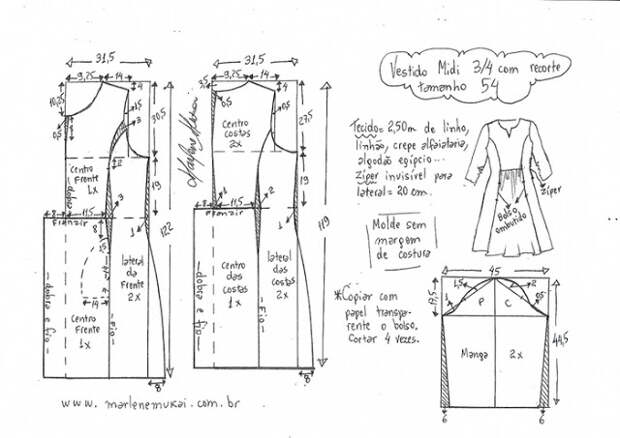 Vestido Midi 3/4 com recorte
tamanho 54
Tecido = 2,50m de linho,
linhão, crepe alfaiataria,
algodão egípcio...
Ziper invisível para
lateral = 20 cm.
Molde sem
margem
de costura
*Copiar com
papel transpa-
rente o bolso.
Cortar 4 vezes.
Bolso
embutido
ziper
31,5
9,25
14
4
10,25
0,5
1,5
3
30,5
Centro
Frente
1x
dobra
2
19
3
8
11,5
Franzir
8
1
122
14
lateral
da
Frente
2x
Centro
Frente
1x
dobra e fio
Fio
8
31,5
9,25
14
3,5
4
0,5
0,5
27,5
Centro
costas
2x
19
1
3
8
11,5
Franzir
1
119
Centro
das
costas
1x
lateral
das
costas
2x
dobra e fio
Fio
8
45
17,5
1,5
2
1
0,5
P
C
44,5
Manga
2x
6
6
www.marlenemukai.com.br